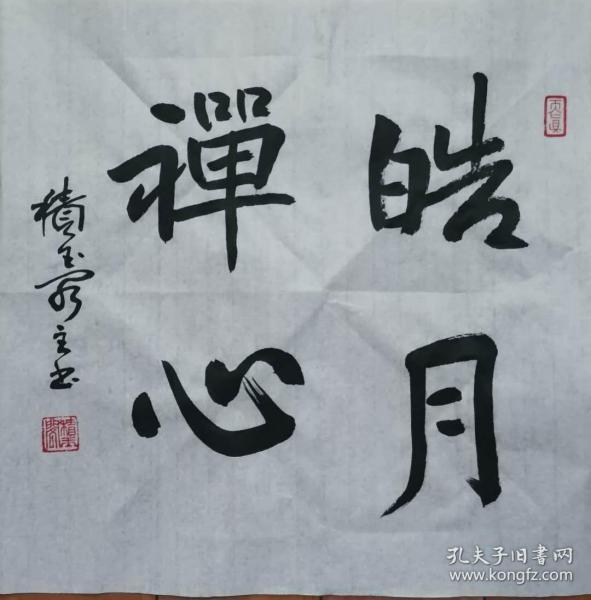 皓月
禪心
積玉閣主书
孔夫子旧書网
www.kongfz.com